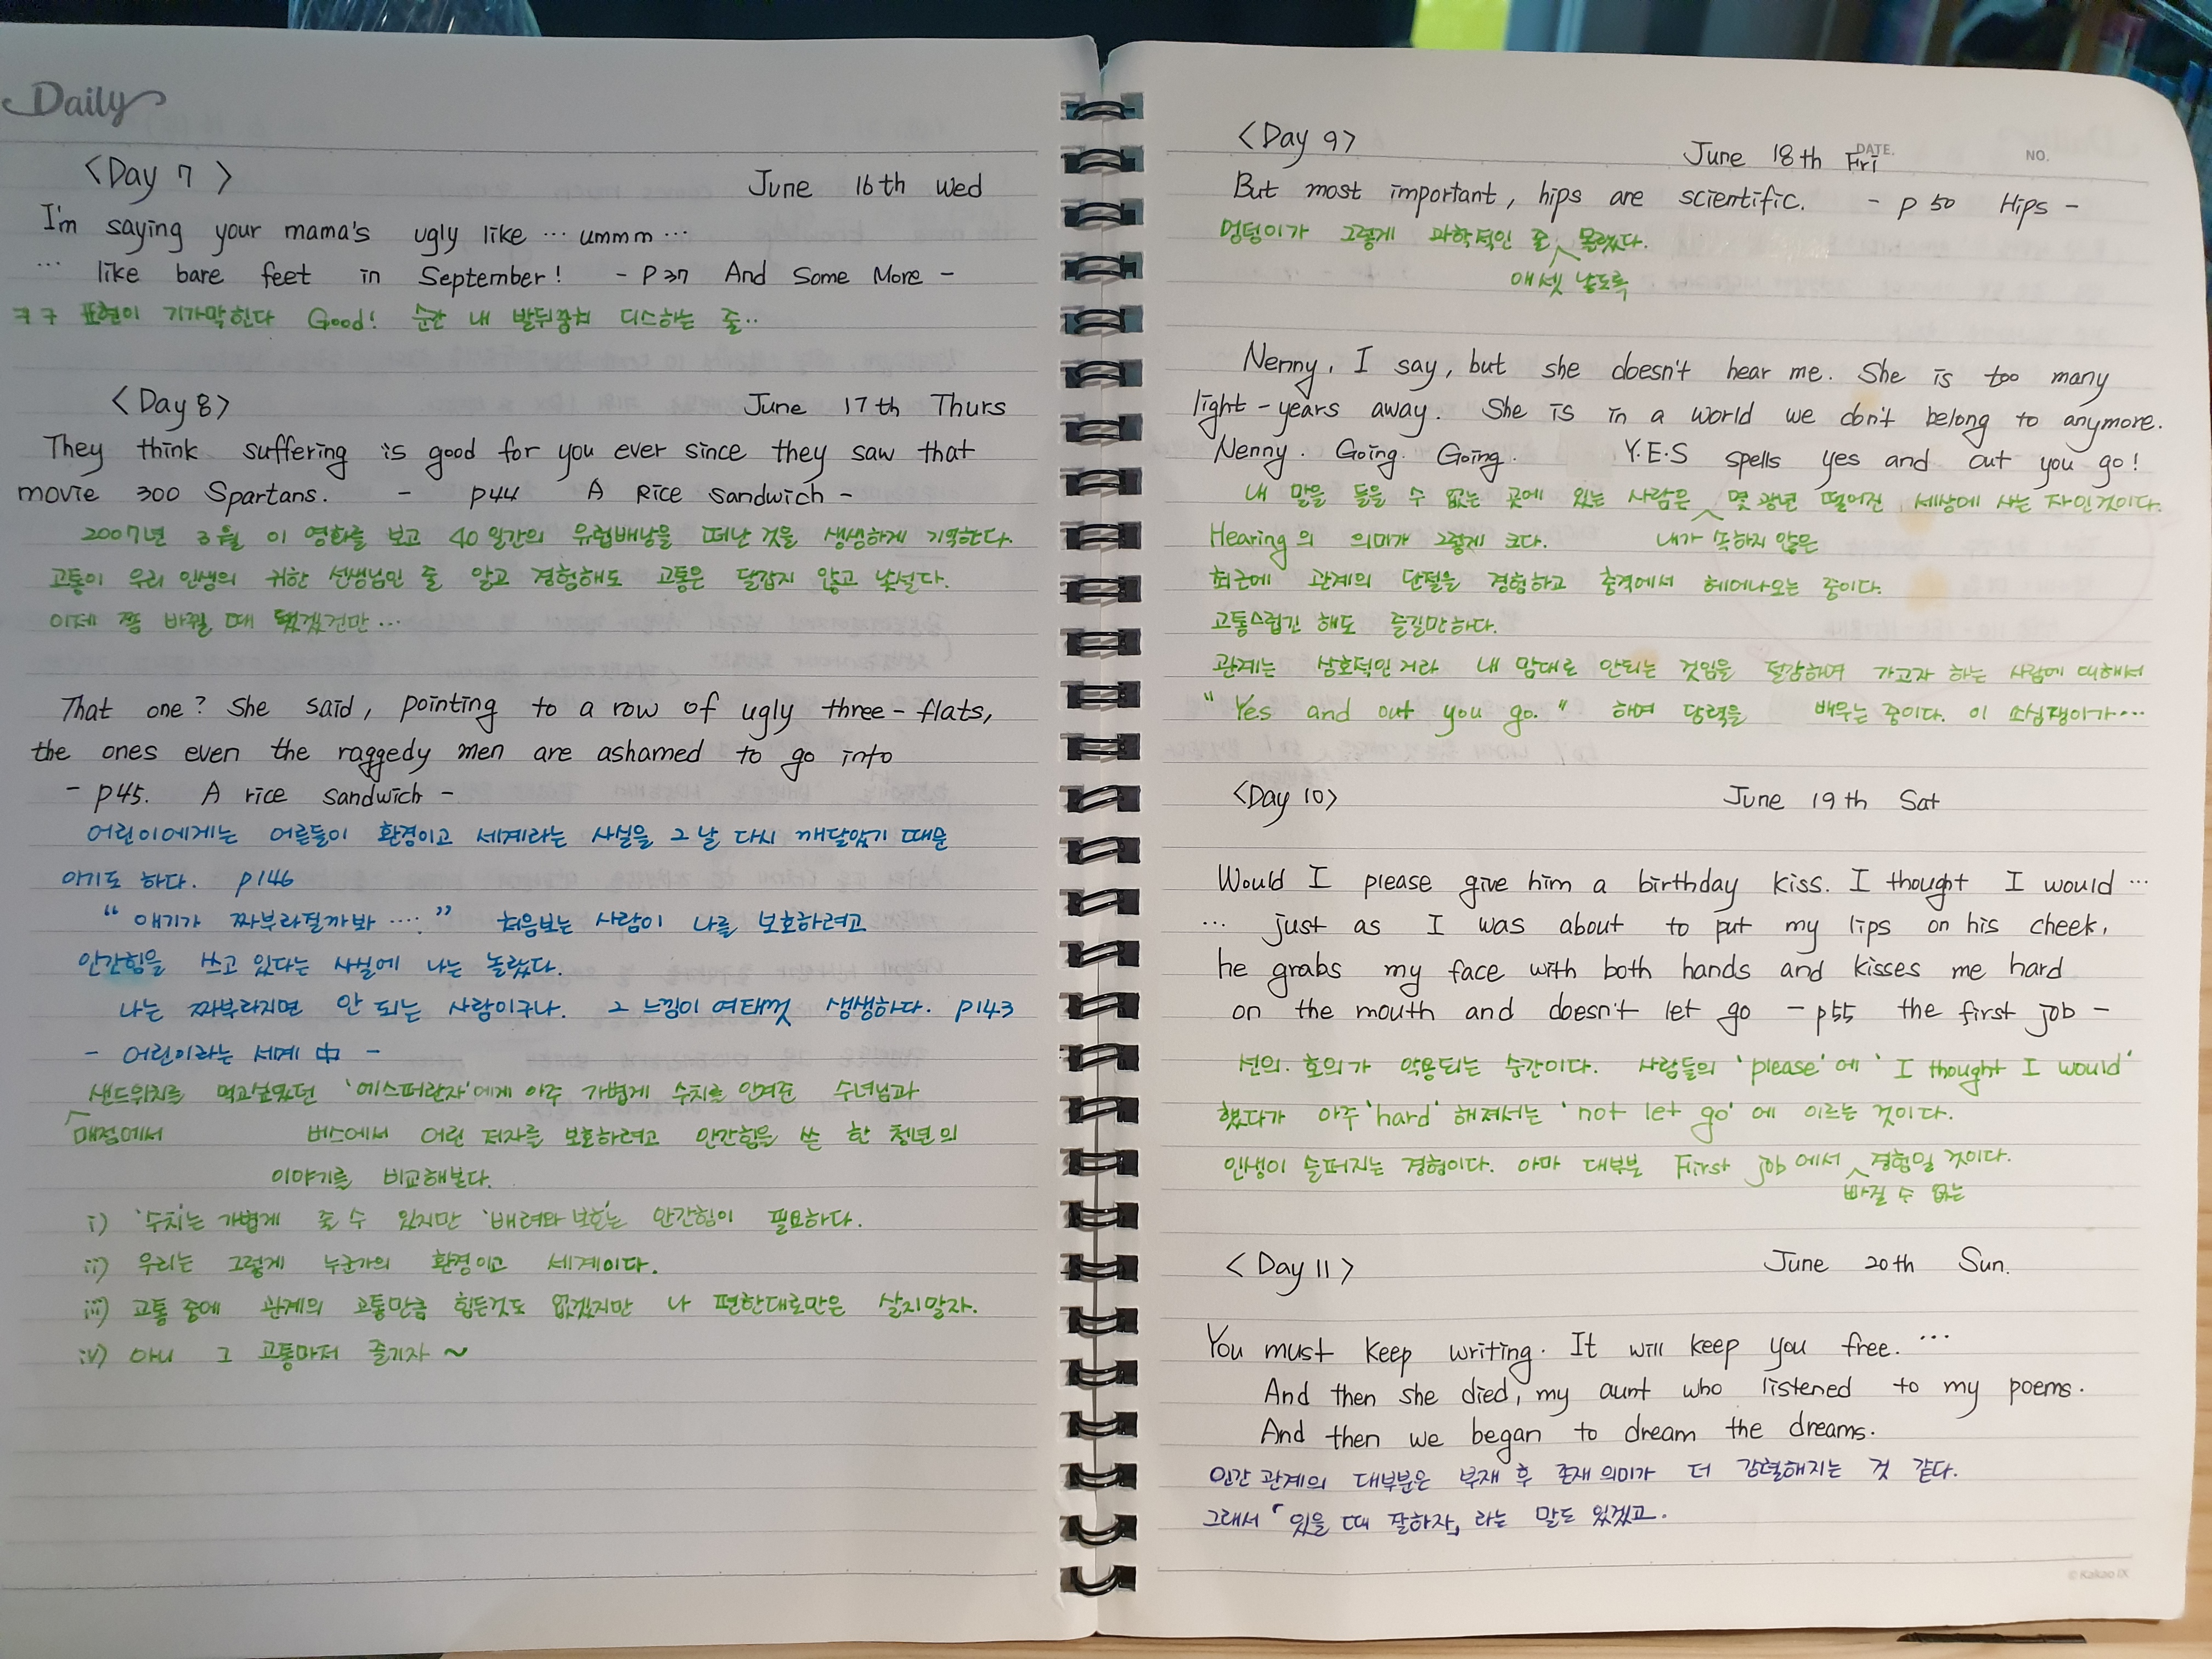 Daily
<Day 7>
June 16th Wed
I'm saying your mama's ugly like … ummm …
… like bare feet in September! - P37 And Some More -
ㅋㅋ 표현이 기가막힌다 Good! 순간 내 발뒤꿈치 디스하는 줄..
<Day 8>
June 17th Thurs
They think suffering is good for you ever since they saw that
movie 300 Spartans. - p44 A Rice sandwich -
2007년 3월 이 영화를 보고 40일간의 유럽배낭을 떠난 것을 생생하게 기억한다.
고통이 우리 인생의 귀한 선생님인 줄 알고 경험해도 고통은 달갑지 않고 낯설다.
이제 쫌 바뀔 때 됐겠건만…
That one? She said, pointing to a row of ugly three-flats,
the ones even the raggedy men are ashamed to go into
- p45. A rice sandwich -
어린이에게는 어른들이 환경이고 세계라는 사실을 그 날 다시 깨달았기 때문
이기도 하다. p146
" 애기가 짜부라질까봐 …. " 처음보는 사람이 나를 보호하려고
안간힘을 쓰고 있다는 사실에 나는 놀랐다.
나는 짜부라지면 안 되는 사람이구나. 그 느낌이 여태껏 생생하다. p143
- 어린이라는 세계 中 -
샌드위치를 먹고싶었던 '에스퍼란자'에게 아주 가볍게 수치를 안겨준 수녀님과
매점에서 버스에서 어린 저자를 보호하려고 안간힘을 쓴 한 청년의
이야기를 비교해본다.
i) '수치'는 가볍게 줄 수 있지만 '배려와 보호'는 안간힘이 필요하다.
ii) 우리는 그렇게 누군가의 환경이고 세계이다.
iii) 고통 중에 관계의 고통만큼 힘든것도 없겠지만 나 편한대로만은 살지말자.
iv) 아니 그 고통마저 즐기자 ~
<Day 9>
June 18th Fri
DATE.
NO.
But most important, hips are scientific. - p 50 Hips -
멍덩이가 그렇게 과학적인 줄 몰랐다.
애셋 낳도록
Nenny, I say, but she doesn't hear me. She is too many
light-years away. She is in a world we don't belong to anymore.
Nenny. Going. Going. Y.E.S spells yes and out you go!
내 말을 들을 수 없는 곳에 있는 사람은 몇 광년 떨어진 세상에 사는 자인것이다.
Hearing의 의미가 그렇게 크다. 내가 속하지 않은
최근에 관계의 단절을 경험하고 충격에서 헤어나오는 중이다.
고통스럽긴 해도 즐길만하다.
관계는 상호적인거라 내 맘대로 안되는 것임을 절감하며 가고자 하는 사람에 대해서
" Yes and out you go. " 하며 담력을 배우는 중이다. 이 소심쟁이가…
<Day 10>
June 19th Sat
Would I please give him a birthday kiss. I thought I would …
… just as I was about to put my lips on his cheek,
he grabs my face with both hands and kisses me hard
on the mouth and doesn't let go - p55 the first job -
선의. 호의가 악용되는 순간이다. 사람들의 'please'에 'I thought I would'
했다가 아주 'hard' 해져서는 'not let go' 에 이르는 것이다.
인생이 슬퍼지는 경험이다. 아마 대부분 First job에서 경험일 것이다.
빠질 수 없는
<Day 11>
June 20th Sun.
You must keep writing. It will keep you free. …
And then she died, my aunt who listened to my poems.
And then we began to dream the dreams.
인간 관계의 대부분은 부재 후 존재 의미가 더 강렬해지는 것 같다.
그래서 「있을 때 잘하자」 라는 말도 있겠고.
© Kakao IX